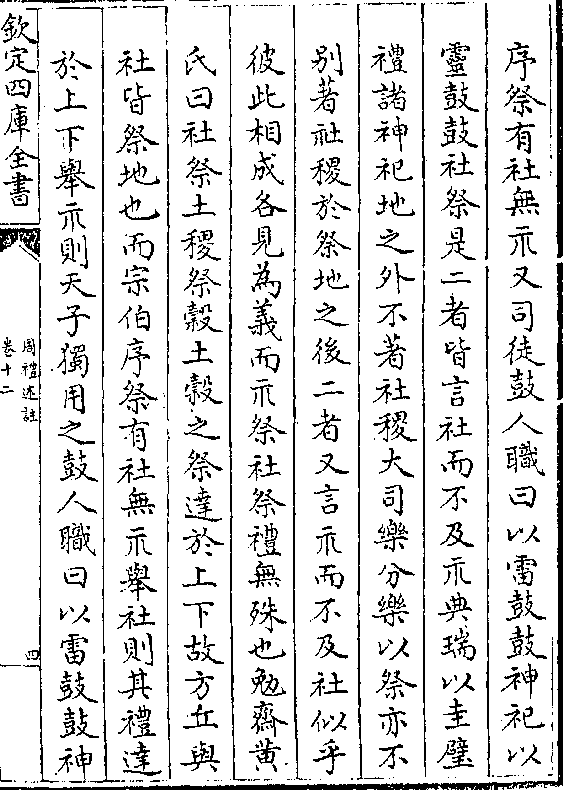 序祭有社無示又司徒鼓人職曰以雷鼓鼓神祀以
靈鼓鼓社祭是二者皆言社而不及示典瑞以圭璧
禮諸神祀地之外不著社稷大司樂分樂以祭亦不
别著社稷於祭地之後二者又言示而不及社似乎
彼此相成各見為義而示祭社祭禮無殊也勉齋黄
氏曰社祭土稷祭糓土糓之祭達於上下故方丘與
社皆祭地也而宗伯序祭有社無示舉社則其禮達
於上下舉示則天子獨用之鼓人職曰以雷鼓鼓神
欽定四庫全書
周禮述註
卷十二
四